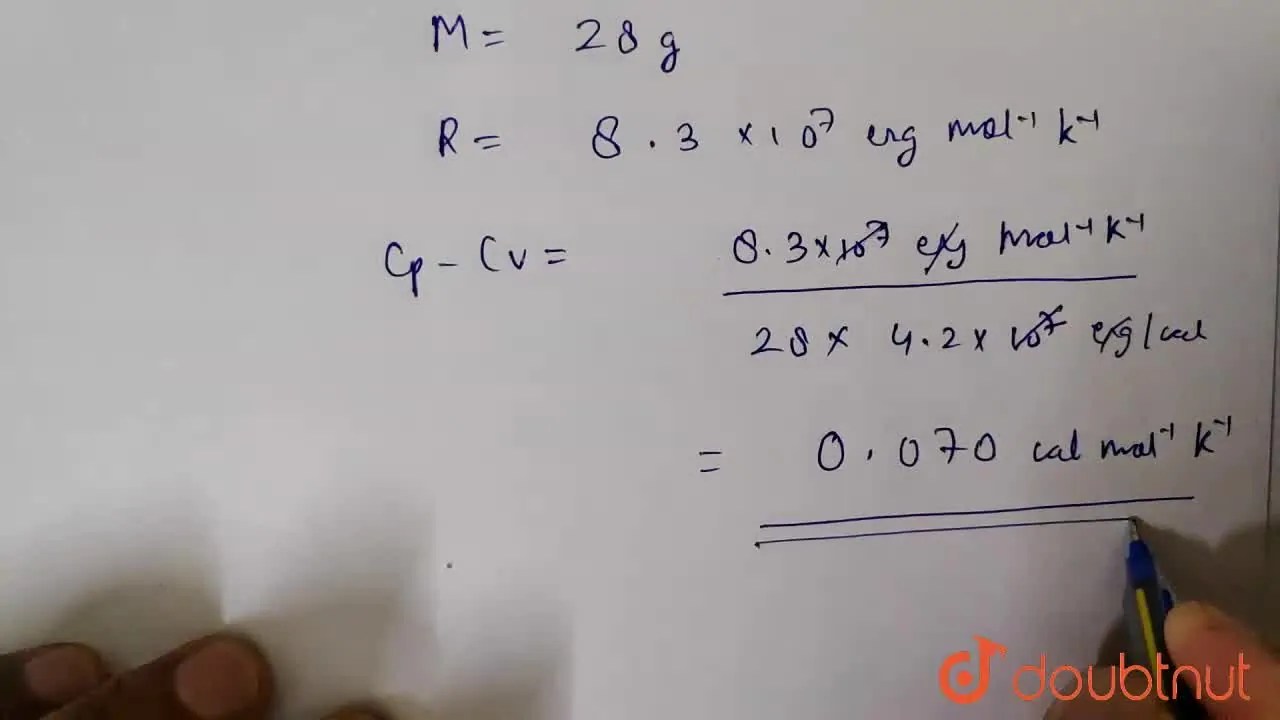 M = 28 g
R = 8.3 × 10⁷ erg mol⁻¹ k⁻¹
Cp - Cv = 8.3 × 10⁷ erg mol⁻¹ k⁻¹
28 × 4.2 × 10⁷ erg/cal
= 0.070 cal mol⁻¹ k⁻¹
doubtnut